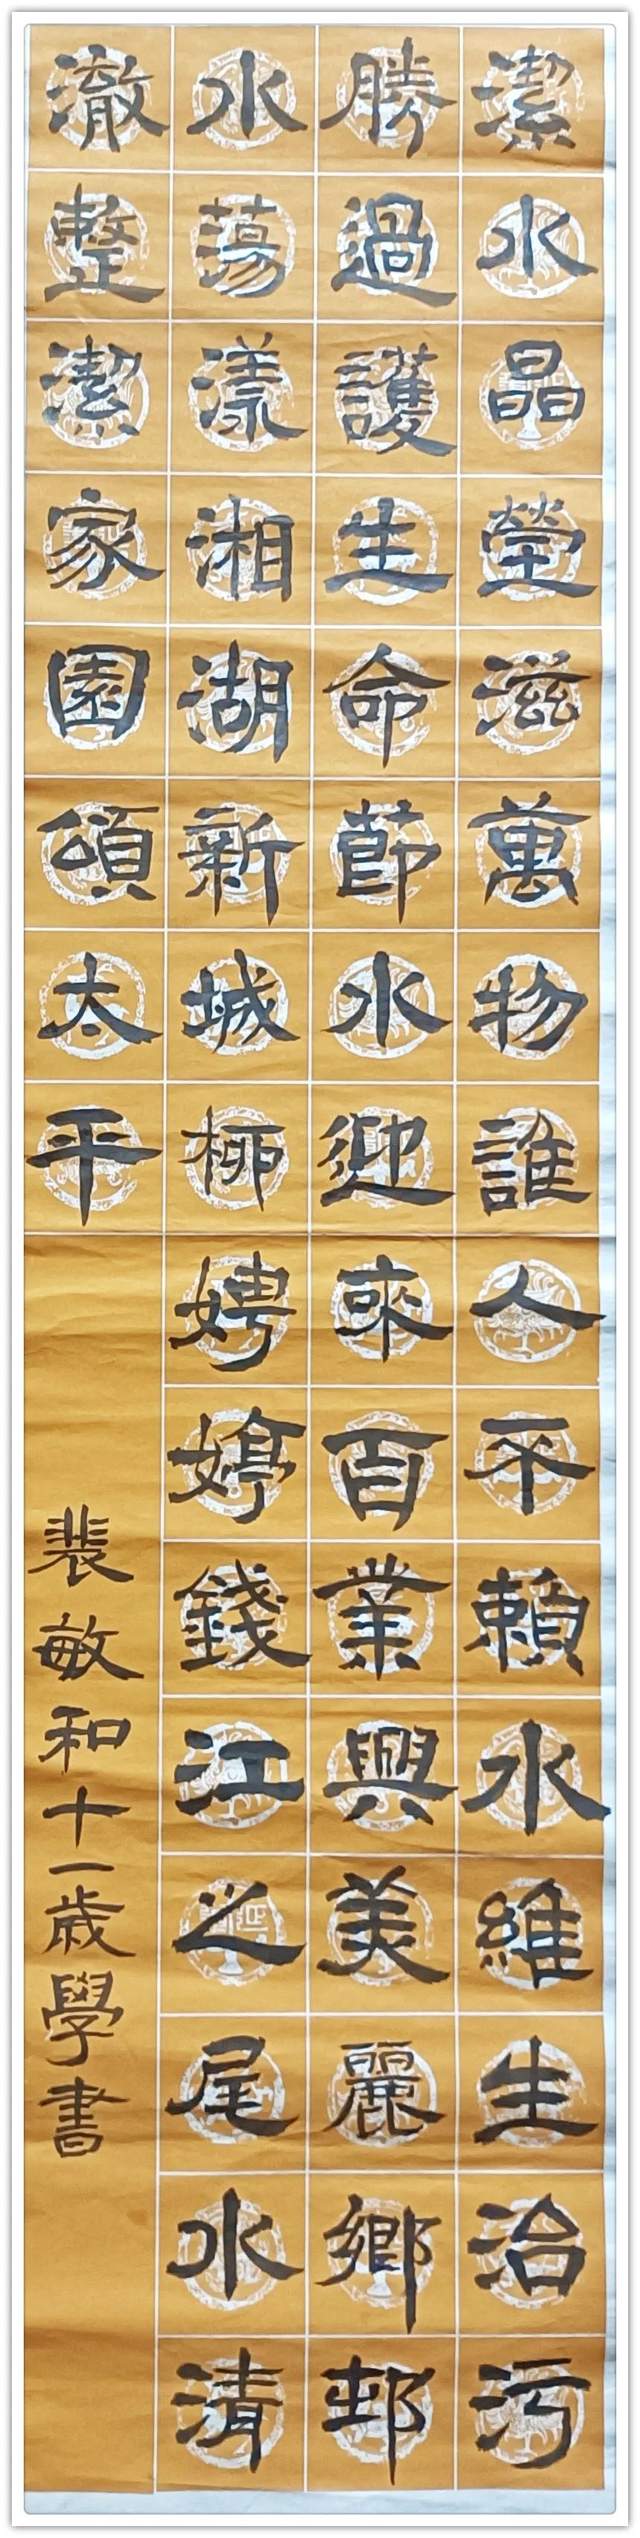 潔水晶瑩滋萬物誰人不賴水維生治污
勝過護生命節水迎來百業興美麗鄉邨
水蕩漾湘湖新城柳娉婷錢江之尾水清
澈整潔家園頌太平
裴敏和十一歲學書